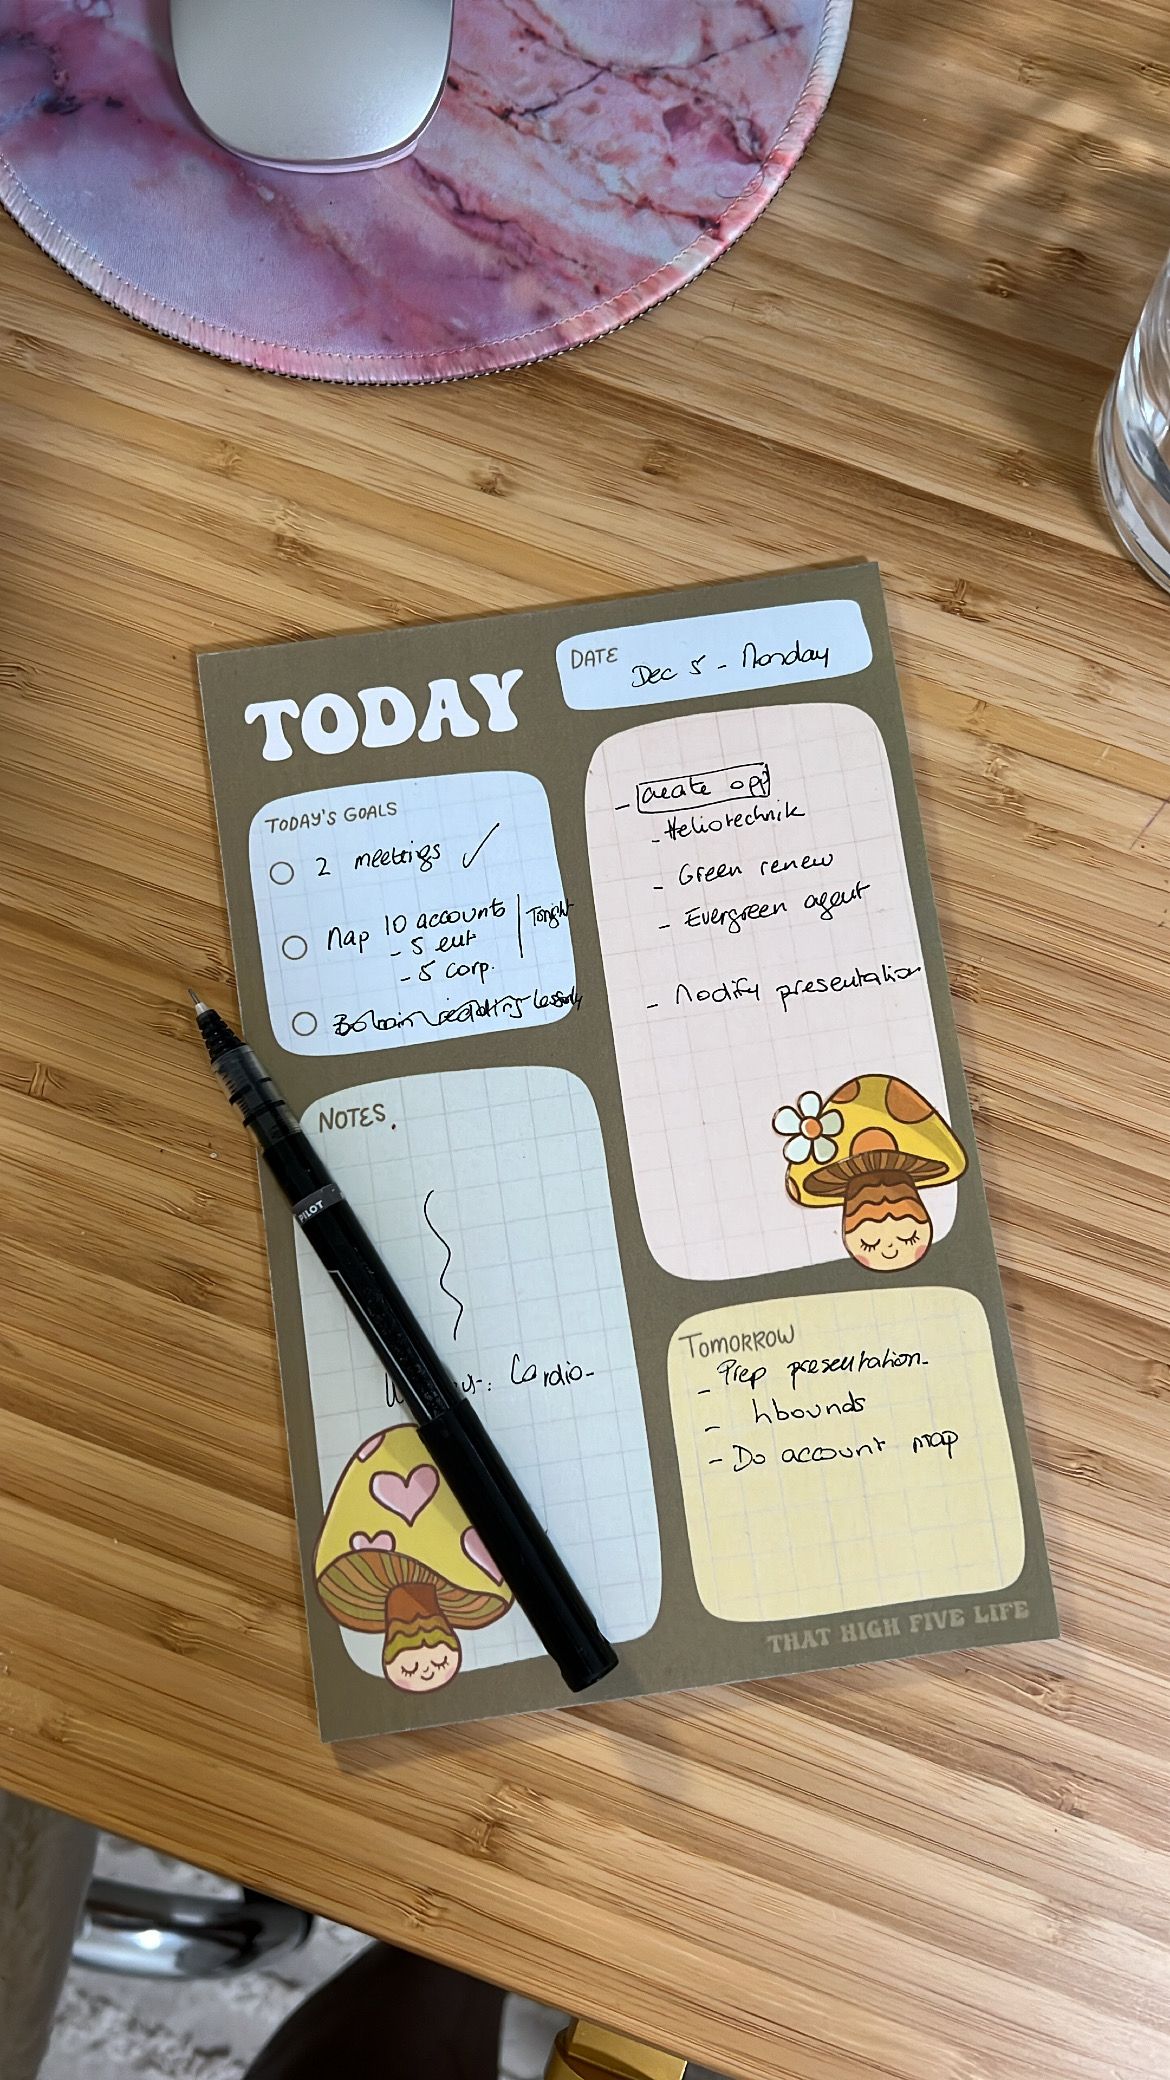 DATE
Dec 5 - Monday
TODAY
TODAY'S GOALS
2 meetings ✓
Map 10 accounts
- 5 ent
- 5 corp.
Tonight
- Create opp
- Heliotechnik
- Green renew
- Evergreen agent
- Modify presentation
NOTES
PILOT
: Cardio-
TOMORROW
- Prep presentation-
- Inbounds
- Do account map
THAT HIGH FIVE LIFE